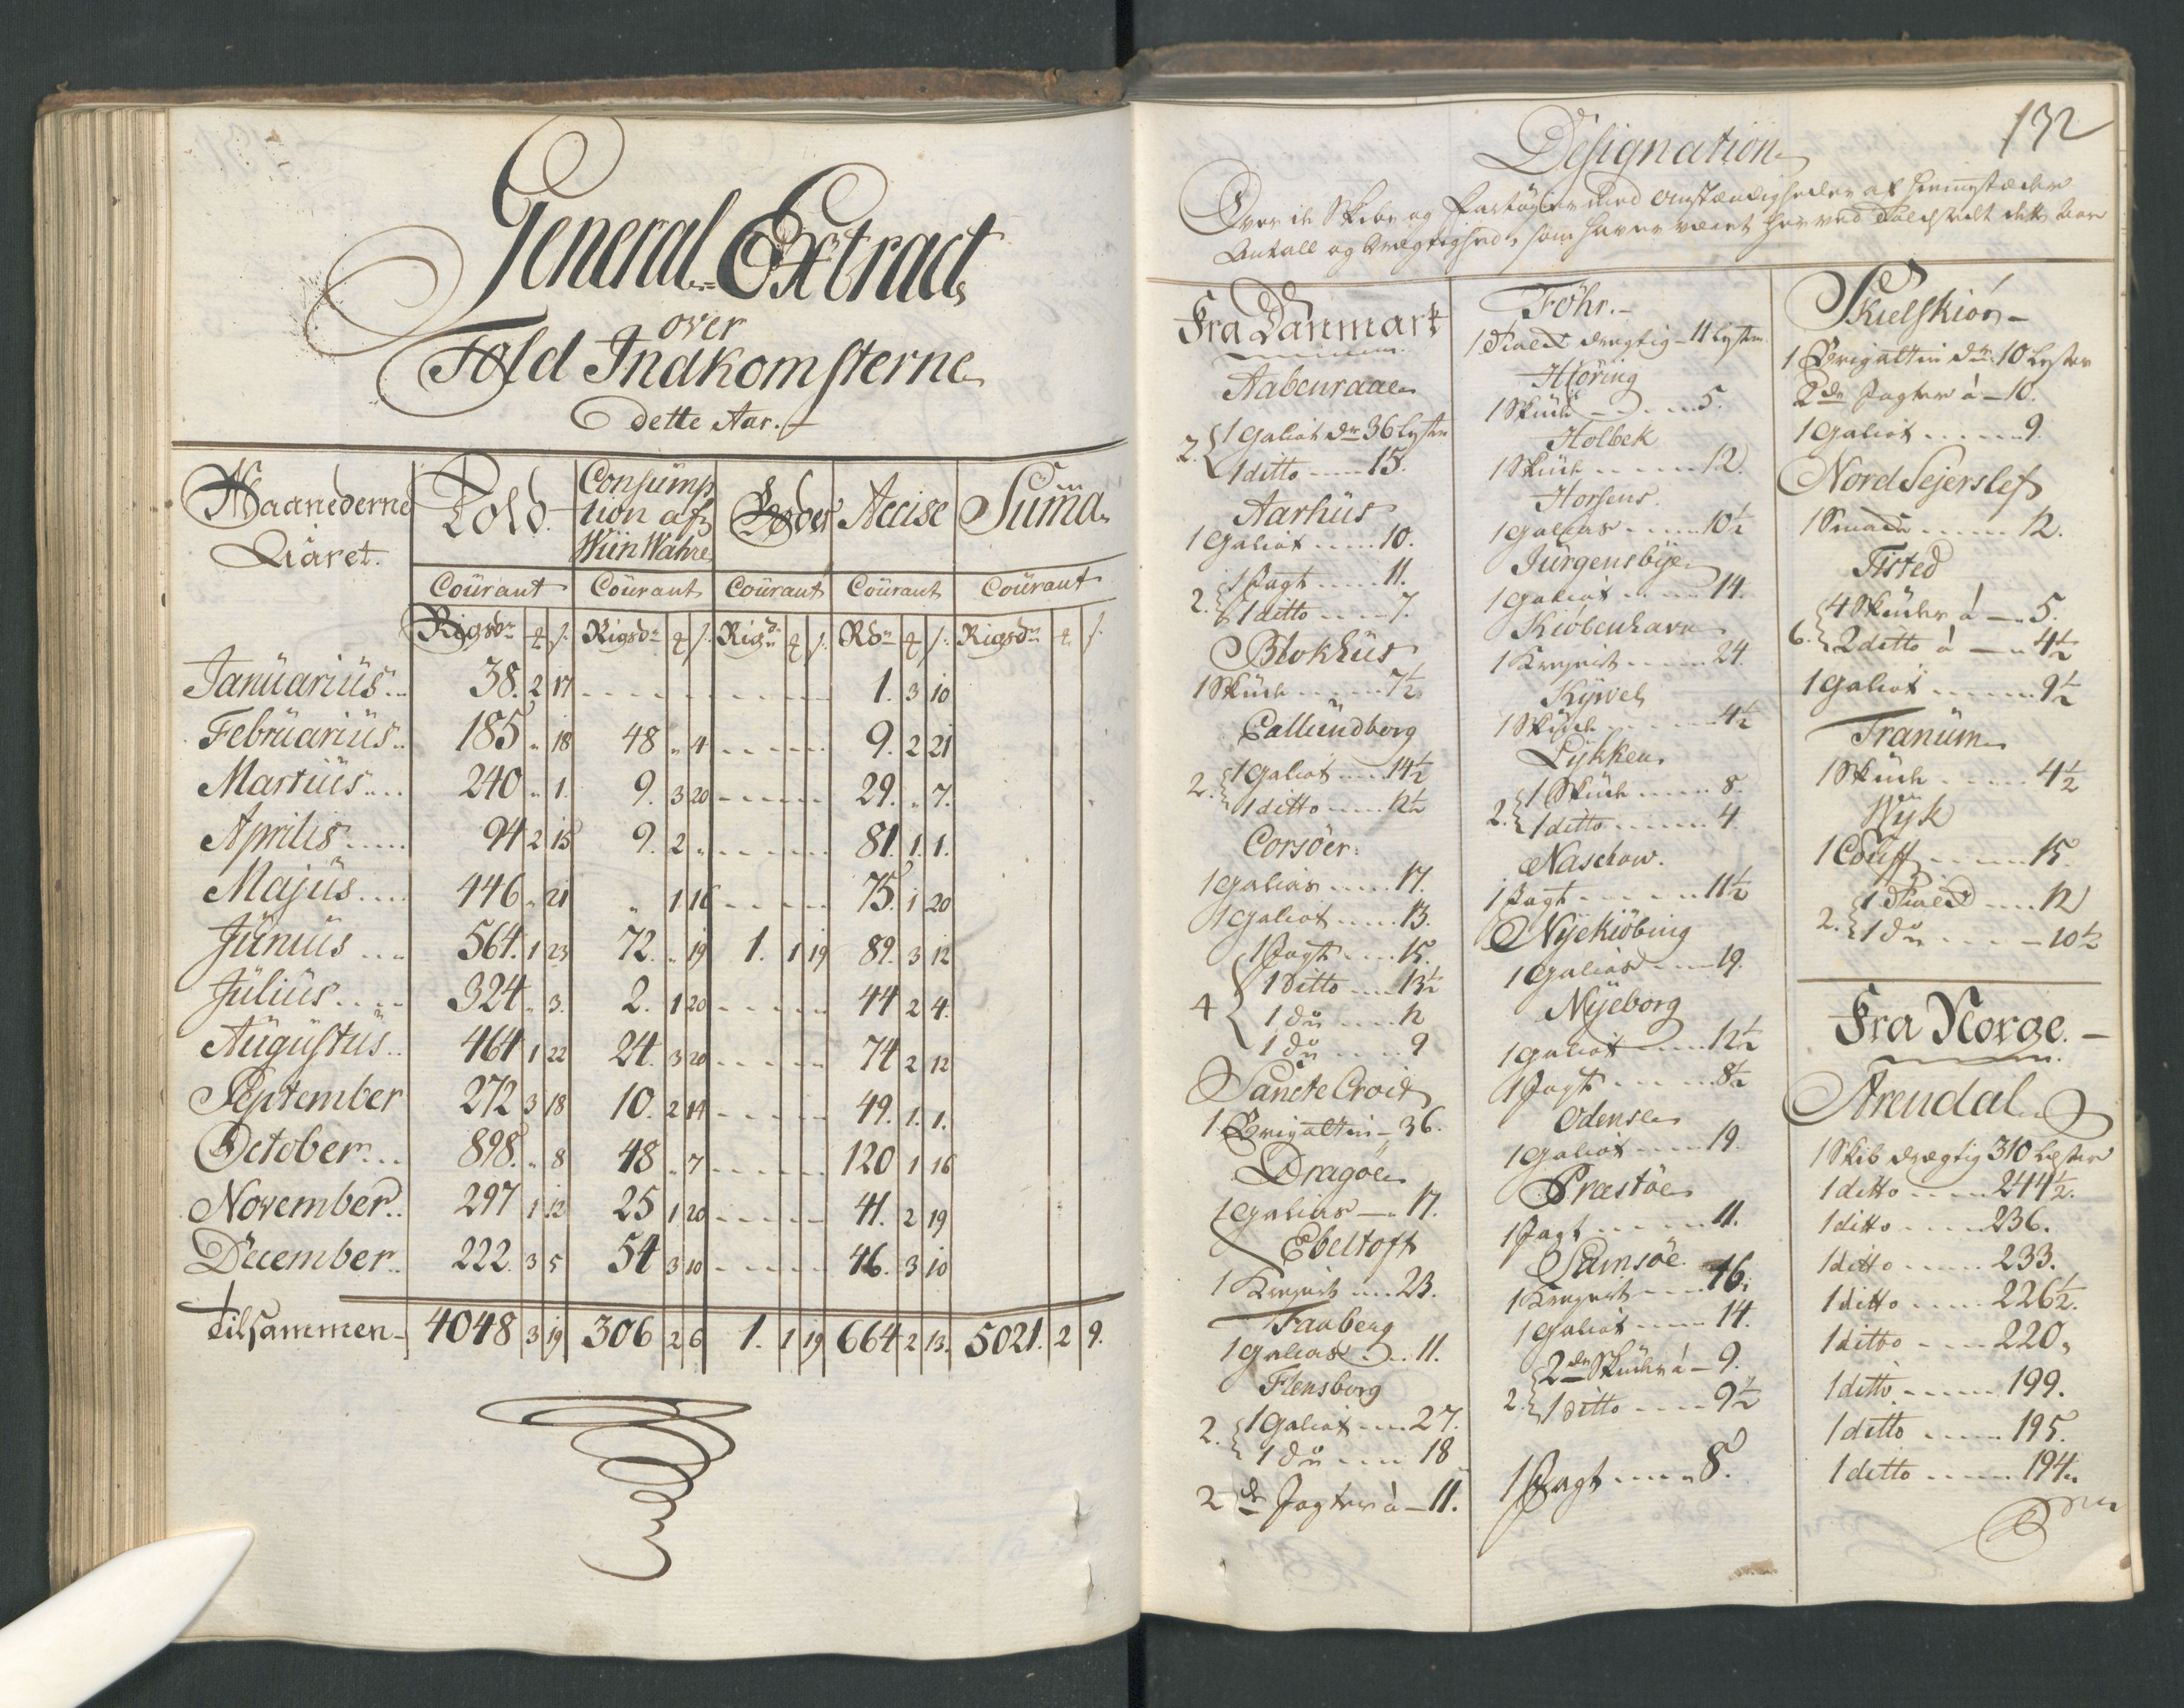 General Extract
over
Told Indkomsterne
dette Aar.
Maanederne i Aaret. Told. Consumption af Wiin Wahre Accise Suma
Courant Courant Courant Courant Courant
Rigsdr ß Rigsdr ß Rigsdr ß Rdr ß Rigsdr ß
Januarius 38. 2 17 1. 3 10
Februarius 185 " 18 48 " 4 9. 2 21
Martius 240 " 1. 9. 3 20 29. " 7.
Aprilis 94 2 15 9. 2 " 81. 1. 1.
Majus 446 " 21 " 1 16 75. 1 20
Junius 564. 1 23 72. " 19 1. 1 19 89. 3 12
Julius 324 " 3. 2. 1 20 44 2 4.
Augustus 464 1 22 24. 3 20 74 2 12
September 272 3 18 10. 2 14 49. 1. 1.
October 898. " 8 48 " 7 120 1 16
November 297 1 12 25 1 20 41. 2 19
December 222. 3 5 54 3 10 46. 3 10
Tilsammen 4048 3 19 306 2 6 1. 1 19 664 2 13. 5021. 2 9.
132
Designation
Over de Skibe og Fartøyer med Omstændigheder af Hiemstæder
Antall og Drægtighed, som haver været her ved Toldstedt dette Aar
Fra Danmark
Aabenraae
2. 1 Galiot dr 36 Lester
1 ditto 15.
Aarhüs
1 Galiot 10.
2. 1 Jagt 11.
1 ditto 7.
Blokhüs
1 Skude 7½
Callundborg
2. 1 Galiot 14½
1 ditto 12½
Corsöer
1 Galias 17.
1 Galiot 13.
4 1 Jagt 15.
1 ditto 13½
1 do 12
1 do 9
Sancte Croix
1 Brigantin 36.
Dragöe
1 Galias 17.
Ebeltoft
1 Krejert 23.
Faaberg
1 Galias 11.
Flensborg
2. 1 Galiot 27.
1 do 18
2 de Jagter à 11.
Föhr.
1 Smak drægtig 11 Lester
Hjöring
1 Skude 5.
Holbek
1 Skude 12.
Horsens.
1 Galias 10½
Jürgensbye
1 Galiot 14.
Kiöbenhavn
1 Krejert 24.
1 Skude 4½
Lykken
2. 1 Skude 8.
1 ditto 4.
Naschow.
1 Jagt 11½
Nyekiöbing
1 Galias 19.
Nyeborg
1 Galiot 12½
1 Jagt 8½
Odense
1 Galiot 19.
Præstöe
1 Jagt 11.
Samsöe
1 Krejert 16.
1 Galiot 14.
2. 2 de Skuder à 9.
1 ditto 9½
1 Jagt 8.
Skielskiör
1 Brigantin dr 10 Lester
2 de Jagter à 10.
1 Galiot 9.
Nord Sejerslef
1 Smak 12.
Tisted
6. 4 Skuder à 5.
2 ditto à 4½
1 Galiot 9½
Tranum
1 Skude 4½
Wyk
1 Couff 15.
2. 1 Smak 12
1 do 10½
Fra Norge.
Arendal
1 Skib drægtig 310 Lester
1 ditto 244½.
1 ditto 236.
1 ditto 233.
1 ditto 226½.
1 ditto 220.
1 ditto 199.
1 ditto 195.
1 ditto 194.